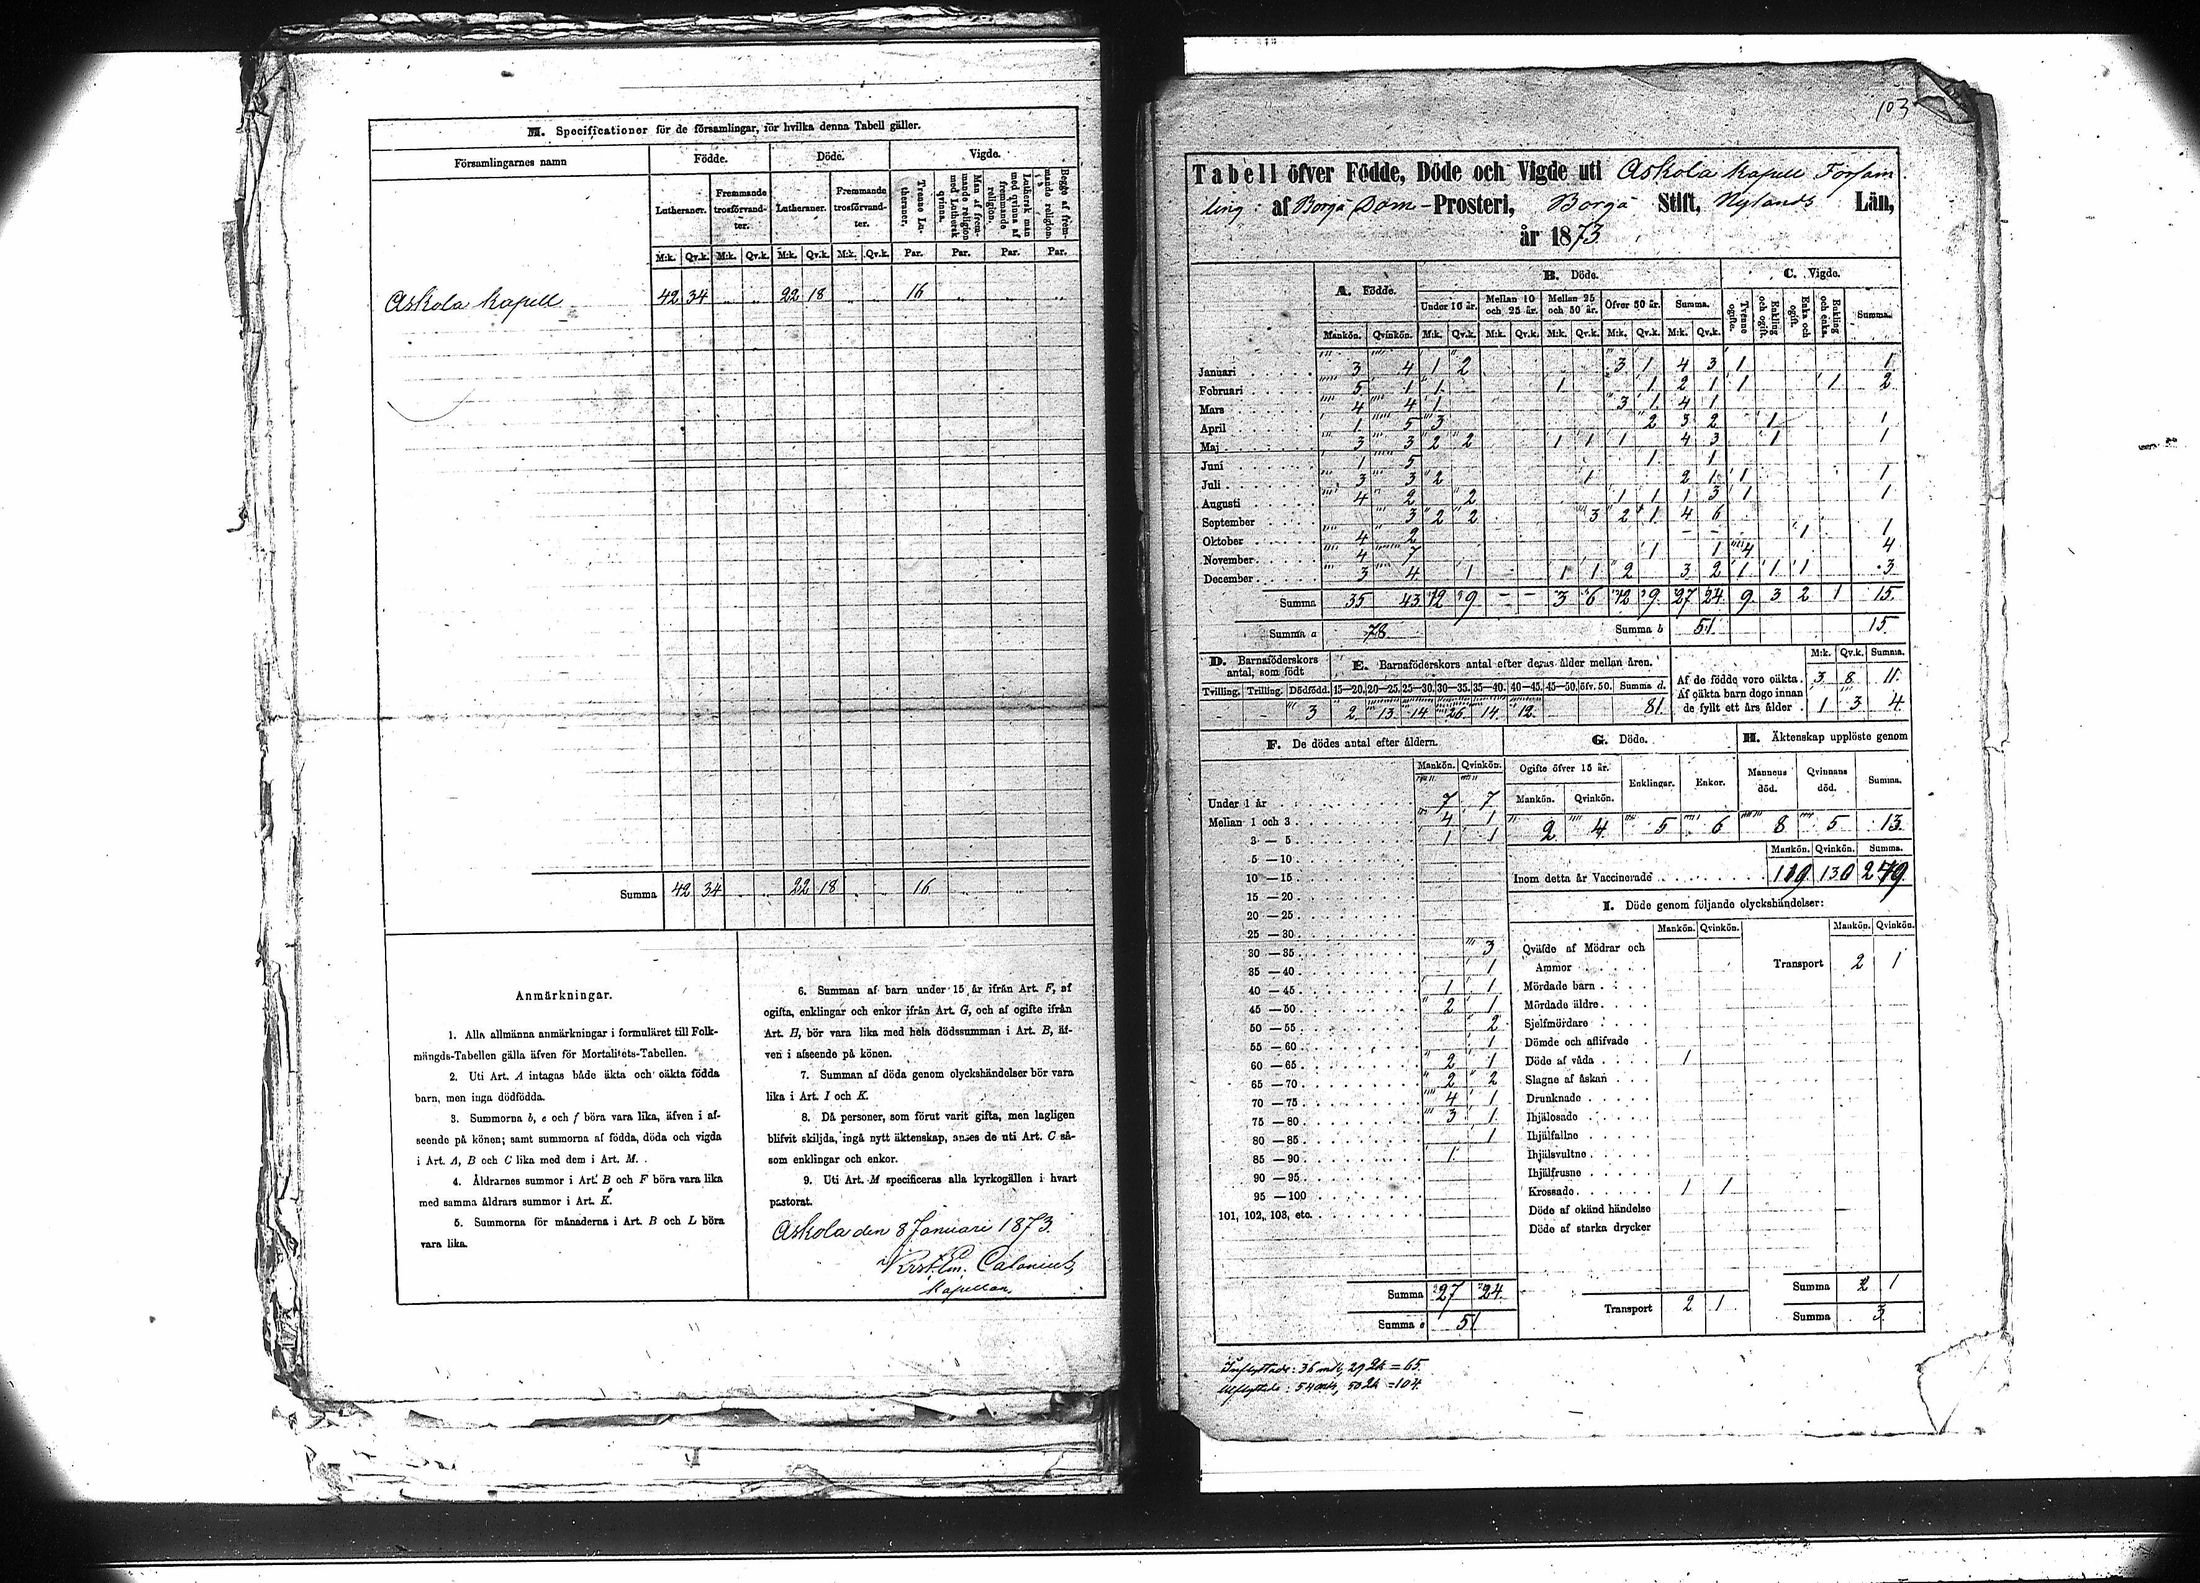 M. Specificationer för de församlingar, för hvilka denna Tabell gäller.
Församlingarnes namn
Födde. Döde. Vigde.
Lutheraner. Fremmande trosförvandter. Lutheraner. Fremmande trosförvandter. Tvenne Lutheraner. Man af fremmande religion med Luthersk qvinna. Luthersk man med qvinna af fremmande religion. Begge af fremmande religion.
M:k. Qv.k. M:k. Qv.k. M:k. Qv.k. M:k. Qv.k. Par. Par. Par. Par.
Askola kapell 42 34 „ „ 22 18 „ „ 16 „ „ „
Summa 42 34 „ „ 22 18 „ „ 16 „ „ „
Anmärkningar.
1. Alla allmänna anmärkningar i formuläret till Folk-
mängds-Tabellen gälla äfven för Mortalitets-Tabellen.
2. Uti Art. A intagas både äkta och oäkta födda
barn, men inga dödfödda.
3. Summorna b, e och f böra vara lika, äfven i af-
seende på könen; samt summorna af födda, döda och vigda
i Art. A, B och C lika med dem i Art. M.
4. Åldrarnes summor i Art. B och F böra vara lika
med samma åldrars summor i Art. K.
5. Summorna för månaderna i Art. B och L böra
vara lika.
6. Summan af barn under 15 år ifrån Art. F, af
ogifta, enklingar och enkor ifrån Art. G, och af ogifte ifrån
Art. H, bör vara lika med hela dödssumman i Art. B, äf-
ven i afseende på könen.
7. Summan af döda genom olyckshändelser bör vara
lika i Art. I och K.
8. Då personer, som förut varit gifta, men lagligen
blifvit skiljda, ingå nytt äktenskap, anses de uti Art. C så-
som enklingar och enkor.
9. Uti Art. M specificeras alla kyrkogällen i hvart
pastorat.
Askola den 8 Januari 1873.
Calonius,
Kapellan.
103
Tabell öfver Födde, Döde och Vigde uti Askola kapell Försam-
ling: af Borgå Dom-Prosteri, Borgå Stift, Nylands Län,
år 1873.
A. Födde. B. Döde. C. Vigde.
Under 10 år. Mellan 10 och 25 år. Mellan 25 och 50 år. Öfver 50 år. Summa. Tvenne ogifte. Enkling och ogift. Enka och ogift. Enkling och enka. Summa.
Mankön. Qvinkön. M:k. Qv.k. M:k. Qv.k. M:k. Qv.k. M:k. Qv.k. M:k. Qv.k.
Januari 3 4 1 2 3 1 4 3 1 1
Februari 5 1 1 1 1 2 1 1 1 2
Mars 4 4 1 3 1 4 1
April 1 5 3 2 3 2 1 1
Maj 3 3 2 2 1 1 1 4 3 1 1
Juni 1 5 1 1
Juli 3 3 2 1 2 1 1 1
Augusti 4 2 2 1 1 1 3 1 1
September 3 2 2 3 2 1 4 6
Oktober 4 2 – – 1 1
November 4 7 1 1 4 4
December 3 4 1 1 1 2 3 2 1 1 1 3
Summa 35 43 12 9 – – 3 6 12 9 27 24 9 3 2 1 15.
Summa a 78 Summa b 51 15.
D. Barnaföderskors antal, som födt
E. Barnaföderskors antal efter deras ålder mellan åren.
M:k. Qv.k. Summa.
Tvilling. Trilling. Dödfödd. 15—20. 20—25. 25—30. 30—35. 35—40. 40—45. 45—50. öfv. 50. Summa d.
– – 3 2 13 14 26 14 12 81
Af de födde voro oäkta. 3 8 11.
Af oäkta barn dogo innan
de fyllt ett års ålder. 1 3 4
F. De dödes antal efter åldern.
Mankön. Qvinkön.
Under 1 år 7 7
Mellan 1 och 3 4 1
3 — 5 1 1
5 — 10
10 — 15
15 — 20
20 — 25
25 — 30
30 — 35 3
35 — 40 1
40 — 45 1 1
45 — 50 2 1
50 — 55 2
55 — 60 1
60 — 65 2 1
65 — 70 2 2
70 — 75 4 1
75 — 80 3 1
80 — 85 1
85 — 90 1
90 — 95
95 — 100
101, 102, 103, etc.
Summa 27 24
Summa e 51
G. Döde. H. Äktenskap upplöste genom
Ogifte öfver 15 år. Enklingar. Enkor. Mannens död. Qvinnans död. Summa.
Mankön. Qvinkön.
2 4 5 6 8 5 13
Mankön. Qvinkön. Summa.
Inom detta år Vaccinerade 130
I. Döde genom följande olyckshändelser:
Mankön. Qvinkön. Mankön. Qvinkön.
Qväfde af Mödrar och
Ammor
Transport 2 1
Mördade barn
Mördade äldre
Sjelfmördare
Dömde och aflifvade
Döde af våda 1
Slagne af åskan
Drunknade
Ihjälosade
Ihjälfallne
Ihjälsvultne
Ihjälfrusne
Krossade 1 1
Döde af okänd händelse
Döde af starka drycker
Transport 2 1
Summa 2 1
Summa 3
Inflyttade: 36 mk, 29 Qk = 65.
Utflyttade: 54 mk, 50 Qk = 104.